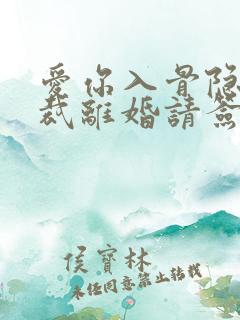 愛你入骨隐
裁離婚請簽
侯寶林
未经同意禁止转载